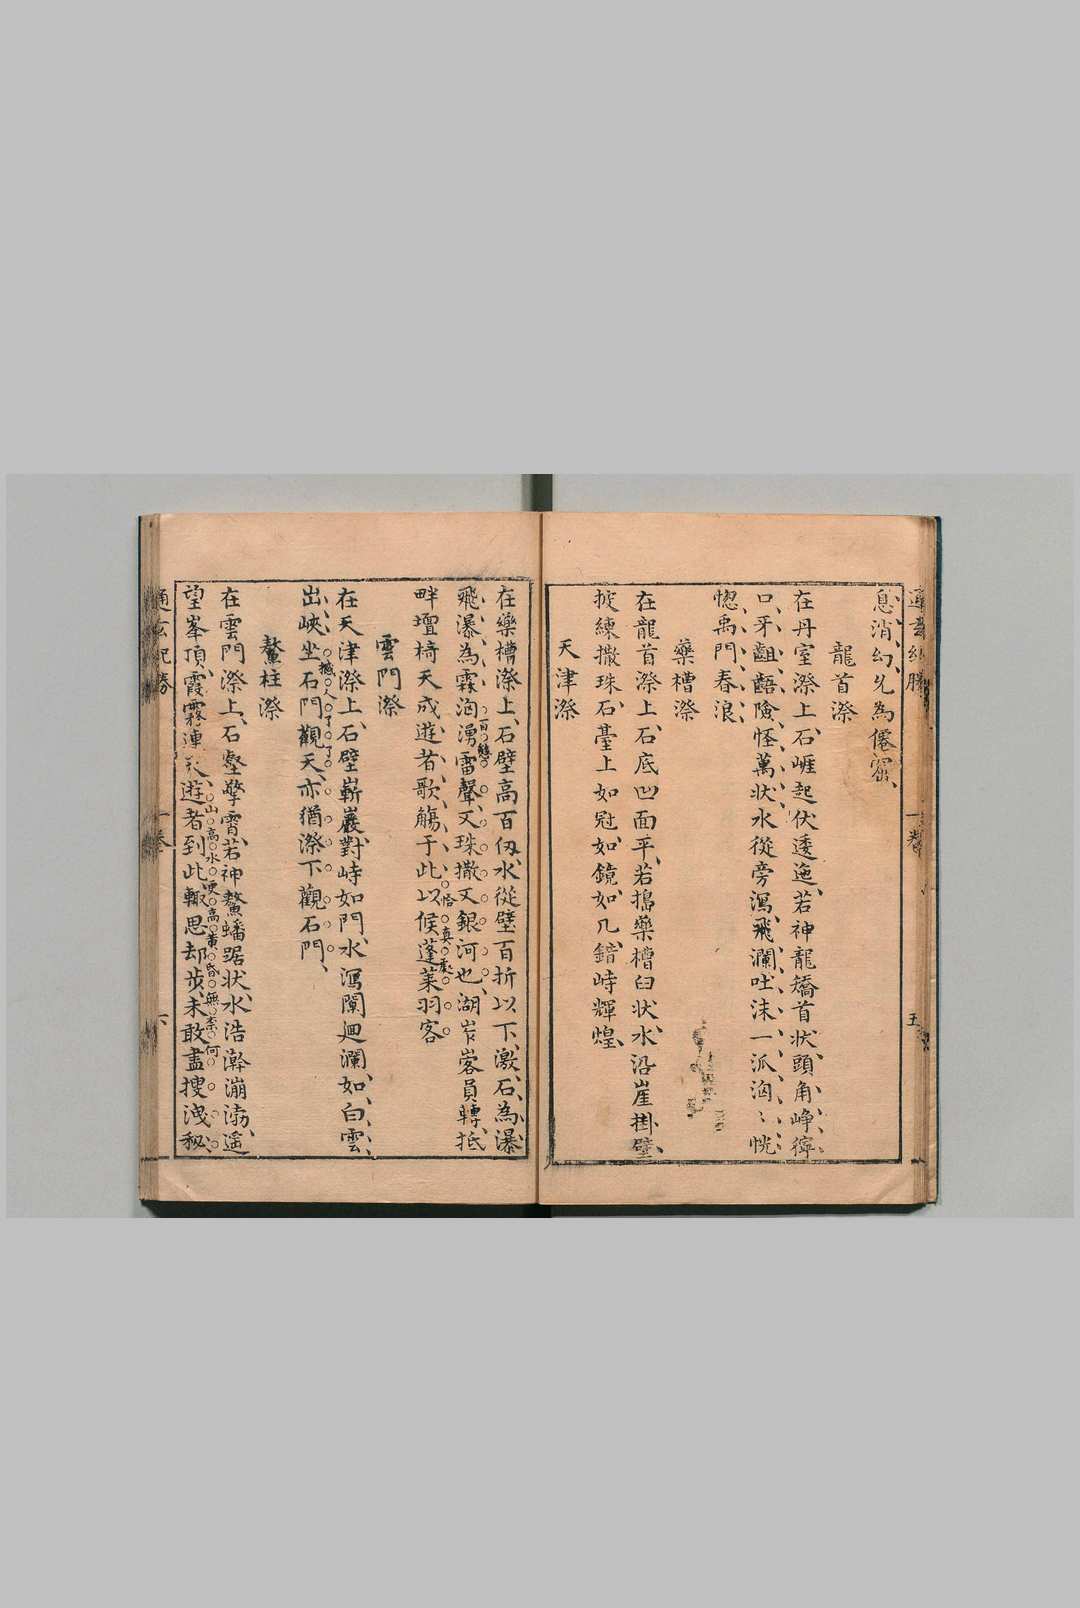 息消幻兊為僊窟、
龍首漈
在丹室漈上、石崕起伏逶迤、若神龍矯首狀、頭角崢嶸、
口牙齟齬、險怪萬狀、水從旁瀉、飛瀾吐沫、一派洶〻、恍
惚禹門春浪、
藥槽漈
在龍首漈上、石底凹面平、若搗藥槽臼狀、水沿崖掛壁、
挼練撒珠、石臺上如冠如鏡、如几、錯峙輝煌、
天津漈
五
在藥槽漈上、石壁高百仞、水從壁百折以下、激石、為瀑
飛瀑、為霖、洶湧雷聲、又珠撒又銀河也、湖岞峉員轉、抵
百態
畔壇椅天成、遊者歌觴于此、以候蓬萊羽客
恰真處
雲門漈
在天津漈上、石壁嶄巖、對峙如門、水瀉闌迴瀾、如白雲、
出峽、坐石門觀天、亦猶漈下觀石門、
撼人了了
鰲柱漈
在雲門漈上、石壑擎霄、若神鰲蟠踞狀、水浩澣漰渤、遥
望峯頂、霞霧連天、遊者到此、輒思却步、未敢盡搜洩秘、
山高水更高黄昏無奈何
通玄紀勝
一卷
六